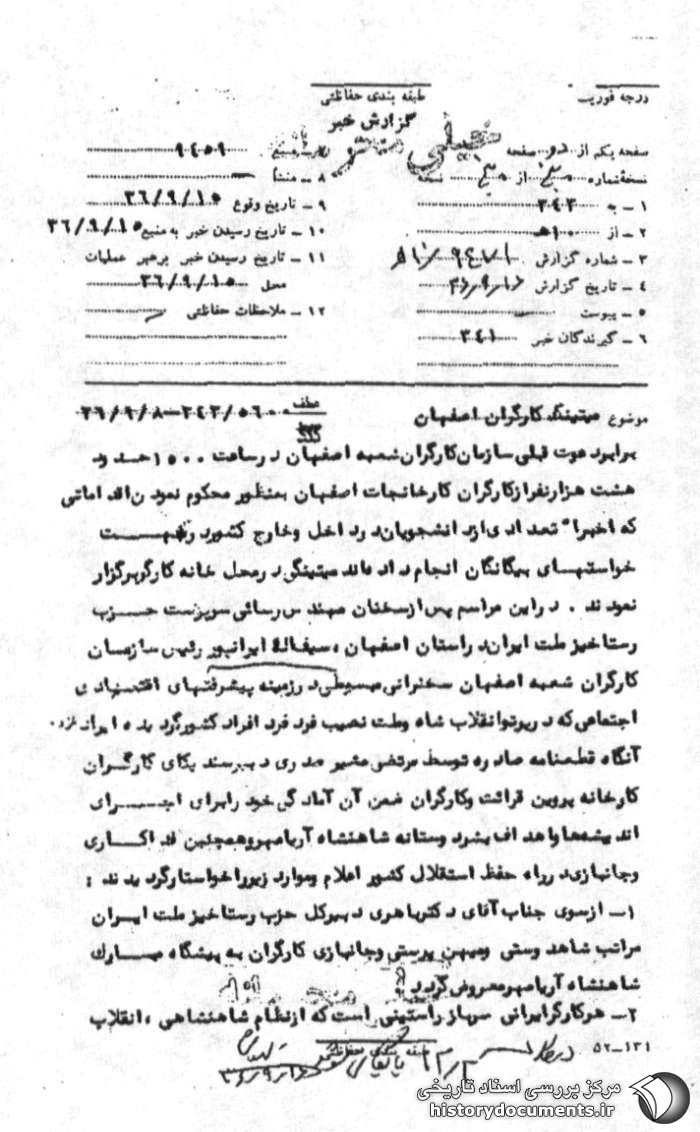 درجه فوریت
طبقه بندی حفاظتی
گزارش خبر
خیلی محرمانه
صفحه یکم از دو صفحه
نسخه شماره از نسخه
۱ - به ۳۴۳
۲ - از ۱۰ هـ
۳ - شماره گزارش
۴ - تاریخ گزارش
۵ - پیوست
۶ - گیرندگان خبر ۳۴۱
۹۴۵۹
۸ - منشأ
۹ - تاریخ وقوع ۳۶/۹/۱۵
۱۰ - تاریخ رسیدن خبر به منبع ۳۶/۹/۱۵
۱۱ - تاریخ رسیدن خبر برهبر عملیات
محل ۳۶/۹/۱۵
۱۲ - ملاحظات حفاظتی
موضوع میتینگ کارگران اصفهان
عطف ۳۶/۹/۸-۳۴۳/۵۶۰۰
برابر دعوت قبلی سازمان کارگران شعبه اصفهان در ساعت ۱۵۰۰ حدود
هشت هزار نفر از کارگران کارخانجات اصفهان بمنظور محکوم نمودن اقداماتی
که اخیرا" تعدادی از دانشجویان در داخل و خارج کشور در جهت
خواستهای بیگانگان انجام داده اند میتینگی در محل خانه کارگر برگزار
نمودند . در این مراسم پس از سخنان مهندس رسائی سرپرست حزب
رستاخیز ملت ایران در استان اصفهان ، سیف اله ایرانپور رئیس سازمان
کارگران شعبه اصفهان سخنرانی مبسوطی در زمینه پیشرفتهای اقتصادی
اجتماعی که در پرتو انقلاب شاه و ملت نصیب فرد فرد افراد کشور گردیده ایراد نمود.
آنگاه قطعنامه صادره توسط مرتضی مشیر صدری دبیر سندیکای کارگران
کارخانه پروین قرائت و کارگران ضمن آن آمادگی خود را برای اجرای
اندیشه ها و اهداف بشردوستانه شاهنشاه آریامهر و همچنین فداکاری
و جانبازی در راه حفظ استقلال کشور اعلام و موارد زیر را خواستار گردیدند :
۱- از سوی جناب آقای دکتر باهری دبیرکل حزب رستاخیز ملت ایران
مراتب شاهدوستی و میهن پرستی و جانبازی کارگران به پیشگاه مبارک
شاهنشاه آریامهر معروض گردد .
۲- هر کارگر ایرانی سرباز راستینی است که از نظام شاهنشاهی ، انقلاب
طبقه بندی حفاظتی
۵۲-۱۳۱
مرکز بررسی اسناد تاریخی
historydocuments.ir